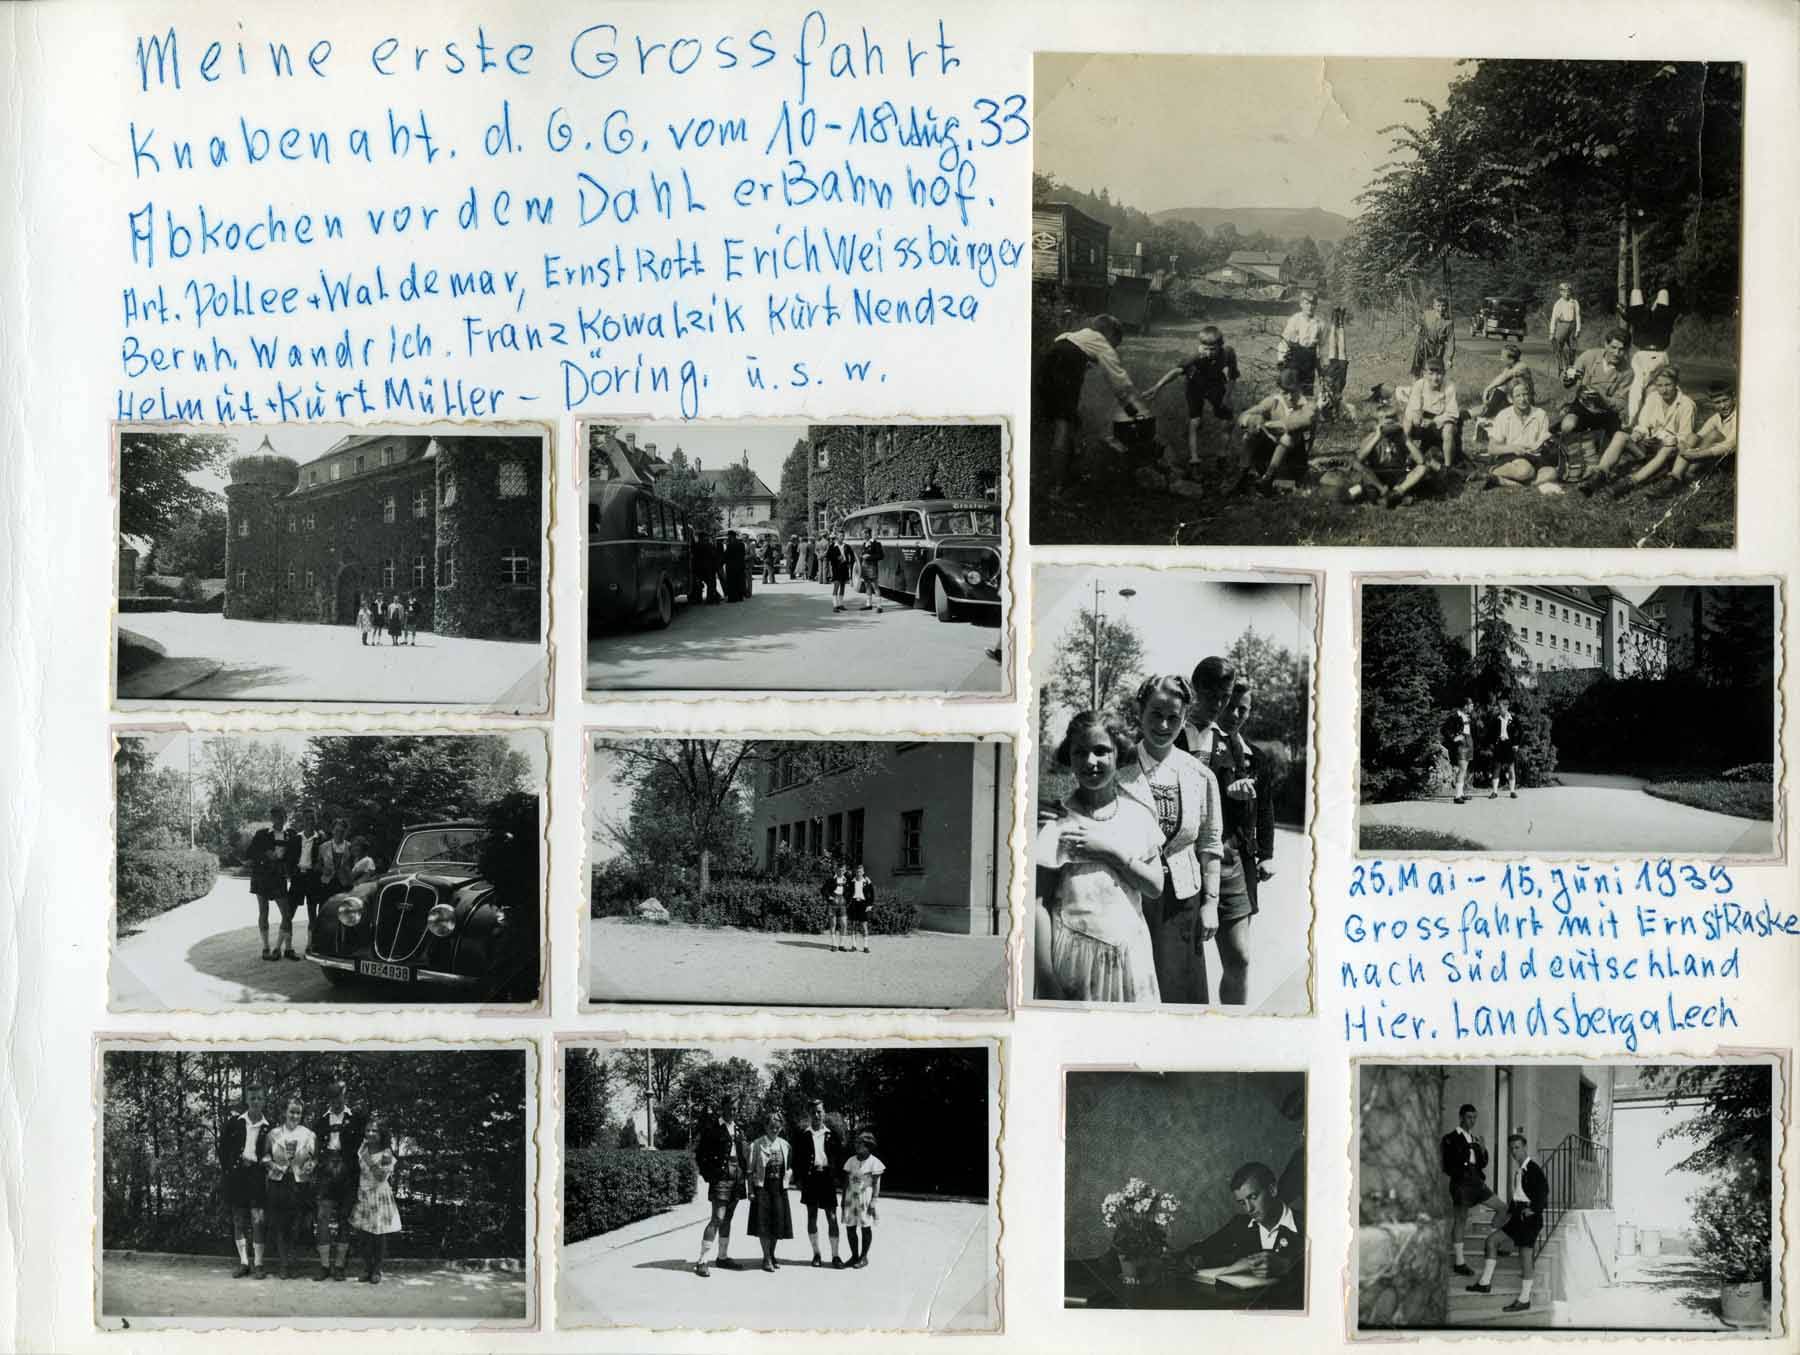 Meine erste Grossfahrt
Knabenabt. d. G.G. vom 10-18 Aug. 33
Abkochen vor dem Dahl er Bahnhof.
Art. Pollee + Waldemar, Ernst Rott Erich Weissbürger
Bernh. Wandrich. Franz Kowalzik Kurt Nendza
Helmut + Kurt Müller - Döring. u.s.w.
IVB-4938
25. Mai - 15. Juni 1939
Grossfahrt mit Ernst Raske
nach Süddeutschland
Hier. Landsberg a Lech